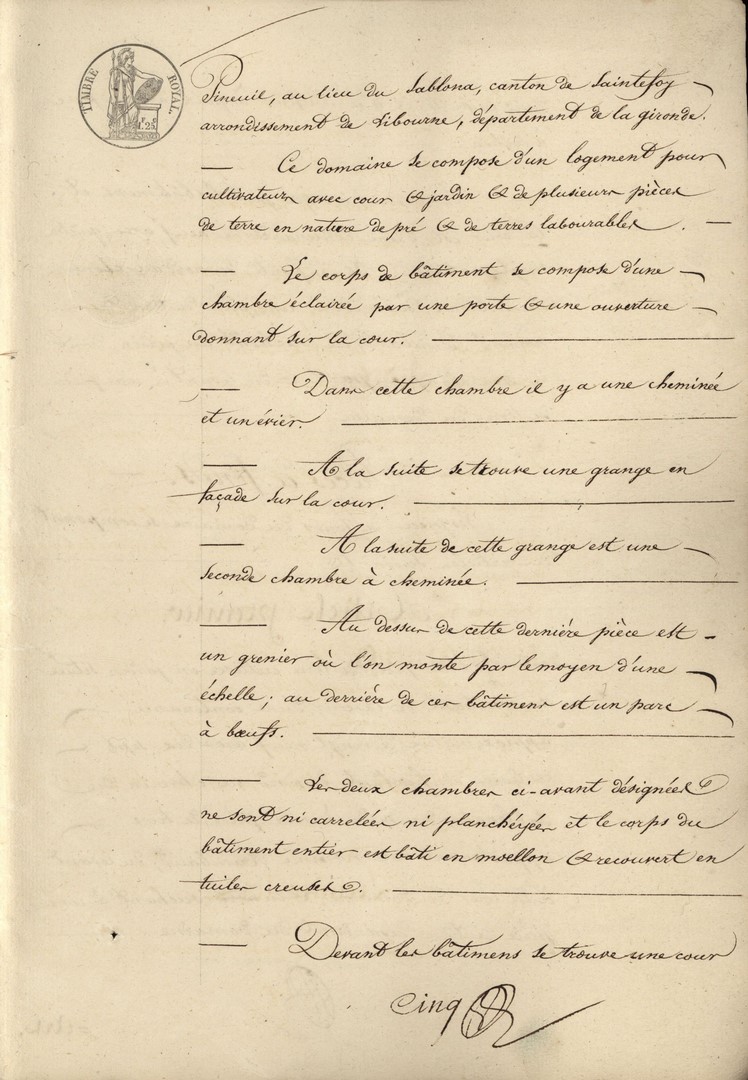 TIMBRE ROYAL
1F. 25c.
Pineuil, au lieu du Sablona, canton de Saintefoy
arrondissement de Libourne, département de la gironde.
— Ce domaine se compose d'un logement pour
cultivateurs avec cour & jardin & de plusieurs pièces
de terre en nature de pré & de terres labourables. —
— Le corps de bâtiment se compose d'une
chambre éclairée par une porte & une ouverture
donnant sur la cour. —
— Dans cette chambre il y a une cheminée
et un évier. —
— A la suite se trouve une grange en
façade sur la cour. —
— A la suite de cette grange est une
seconde chambre à cheminée. —
— Au dessus de cette dernière pièce est
un grenier où l'on monte par le moyen d'une
échelle; au derrière de ces bâtimens est un parc
à bœufs. —
— Les deux chambres ci-avant désignées
ne sont ni carrelées ni planchéyées et le corps du
bâtiment entier est bâti en moellon & recouvert en
tuiles creuses. —
— Devant les bâtimens se trouve une cour
cinq